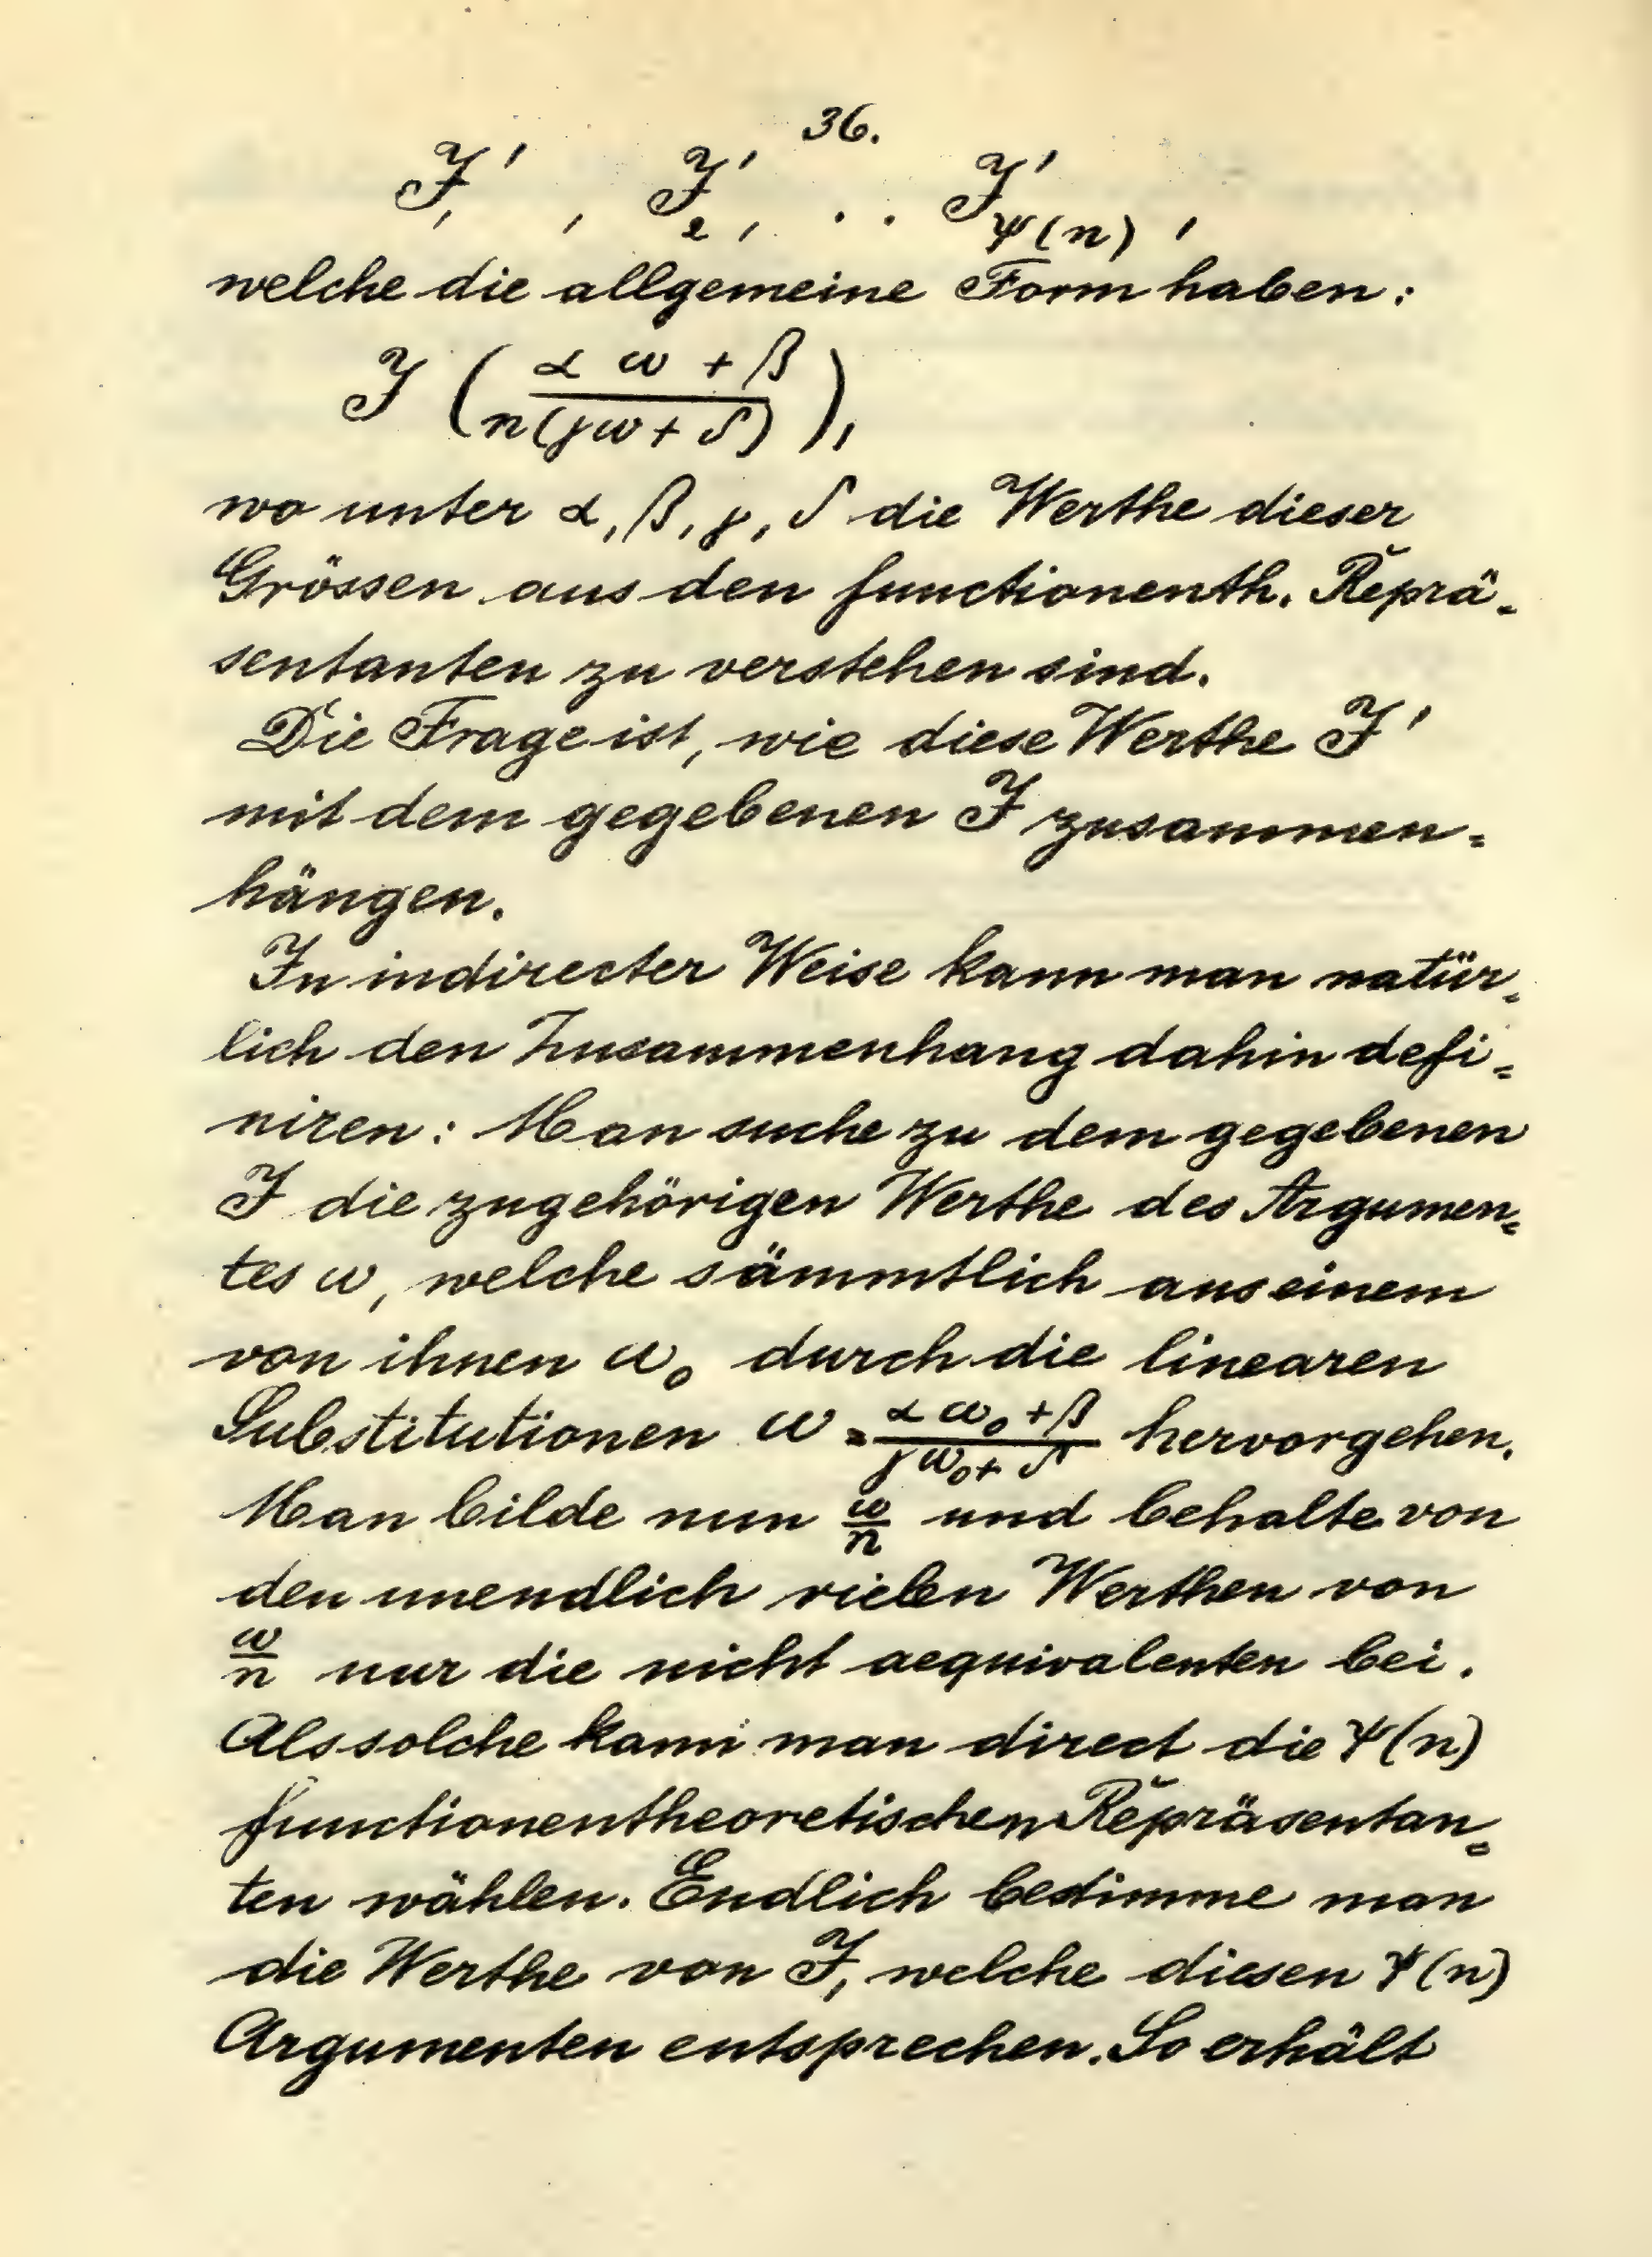 36.
J′₁, J′₂, . . J′ψ(n),
welche die allgemeine Form haben:
J (αω + β / n(γω + δ)),
wo unter α, β, γ, δ die Werthe dieser
Grössen aus den functionenth. Reprä-
sentanten zu verstehen sind.
Die Frage ist, wie diese Werthe J′
mit dem gegebenen J zusammen-
hängen.
In indirecter Weise kann man natür-
lich den Zusammenhang dahin defi-
niren: Man suche zu dem gegebenen
J die zugehörigen Werthe des Argumen-
tes ω, welche sämmtlich aus einem
von ihnen ω₀ durch die linearen
Substitutionen ω = αω₀+β / γω₀+δ hervorgehen.
Man bilde nun ω/n und behalte von
den unendlich vielen Werthen von
ω/n nur die nicht aequivalenten bei.
Als solche kann man direct die ψ(n)
functionentheoretischen Repräsentan-
ten wählen. Endlich bestimme man
die Werthe von J, welche diesen ψ(n)
Argumenten entsprechen. So erhält